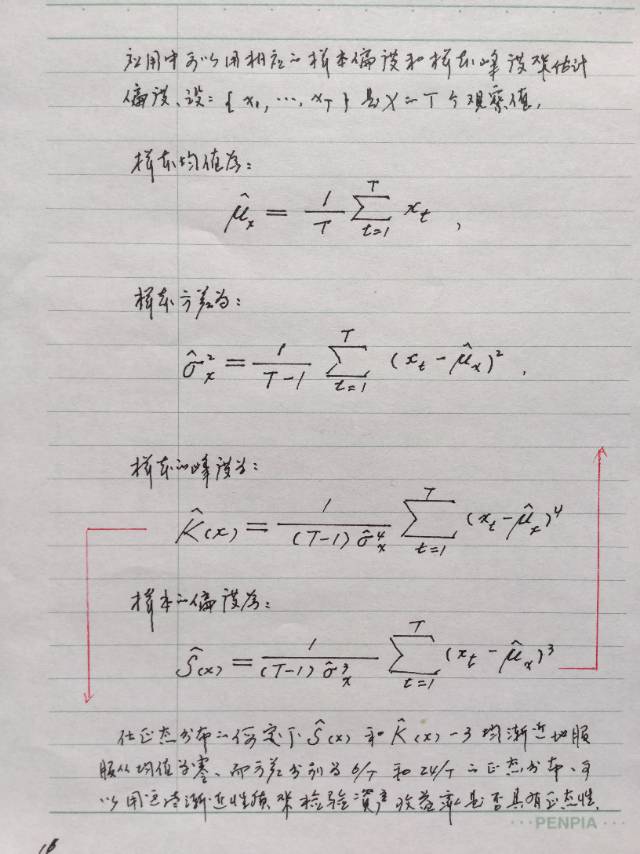 应用中可以用相应的样本偏度和样本峰度来估计
偏度、设:{x₁, …, x_T}是X的T个观察值,
样本均值为:
μ̂ₓ = 1/T ∑_{t=1}^{T} x_t ,
样本方差为:
σ̂ₓ² = 1/(T-1) ∑_{t=1}^{T} (x_t - μ̂ₓ)² .
样本的峰度为:
K̂(x) = 1/((T-1) σ̂ₓ⁴) ∑_{t=1}^{T} (x_t - μ̂ₓ)⁴
样本的偏度为:
Ŝ(x) = 1/((T-1) σ̂ₓ³) ∑_{t=1}^{T} (x_t - μ̂ₓ)³
在正态分布的假定下 Ŝ(x) 和 K̂(x) - 3 均渐近地服
服从均值为零、而方差分别为 6/T 和 24/T 的正态分布、可
以用这渐近性质来检验资产收益率是否具有正态性.
PENPIA
18